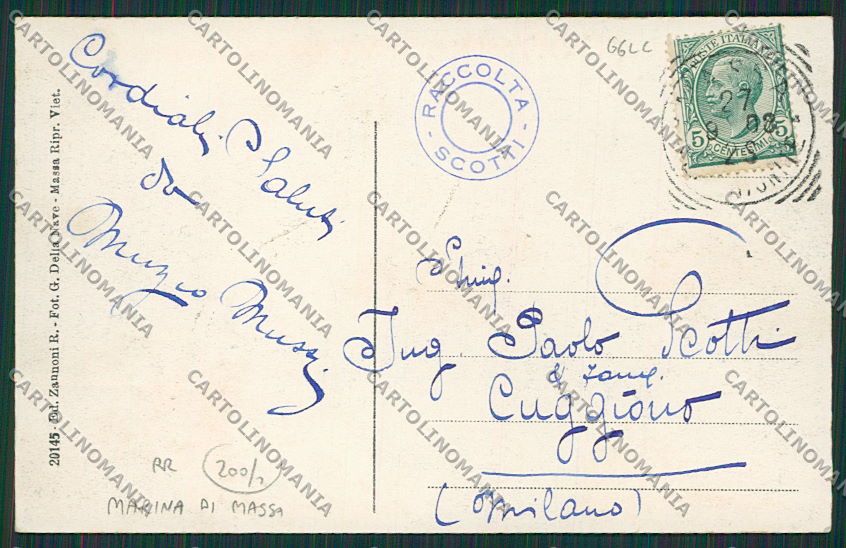 20145 - Ed. Zannoni R. - Fot. G. Della Nave - Massa Ripr. Viet.
Cordiali Saluti
da
Muzio Mussi
RR
200/
MARINA DI MASSA
RACCOLTA
- SCOTTI -
GGLC
POSTE ITALIANE
5 CENTESIMI 5
27
9 08
Ing. Paolo Scotti
& fam.
Cuggiono
(Milano)
CARTOLINOMANIA